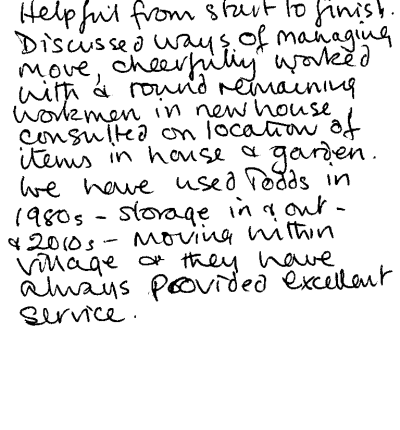 Helpful from start to finish.
Discussed ways of managing
move, cheerfully worked
with & round remaining
workmen in new house,
consulted on location of
items in house & garden.
We have used Todds in
1980s - storage in & out -
& 2010s - moving within
village & they have
always provided excellent
service.